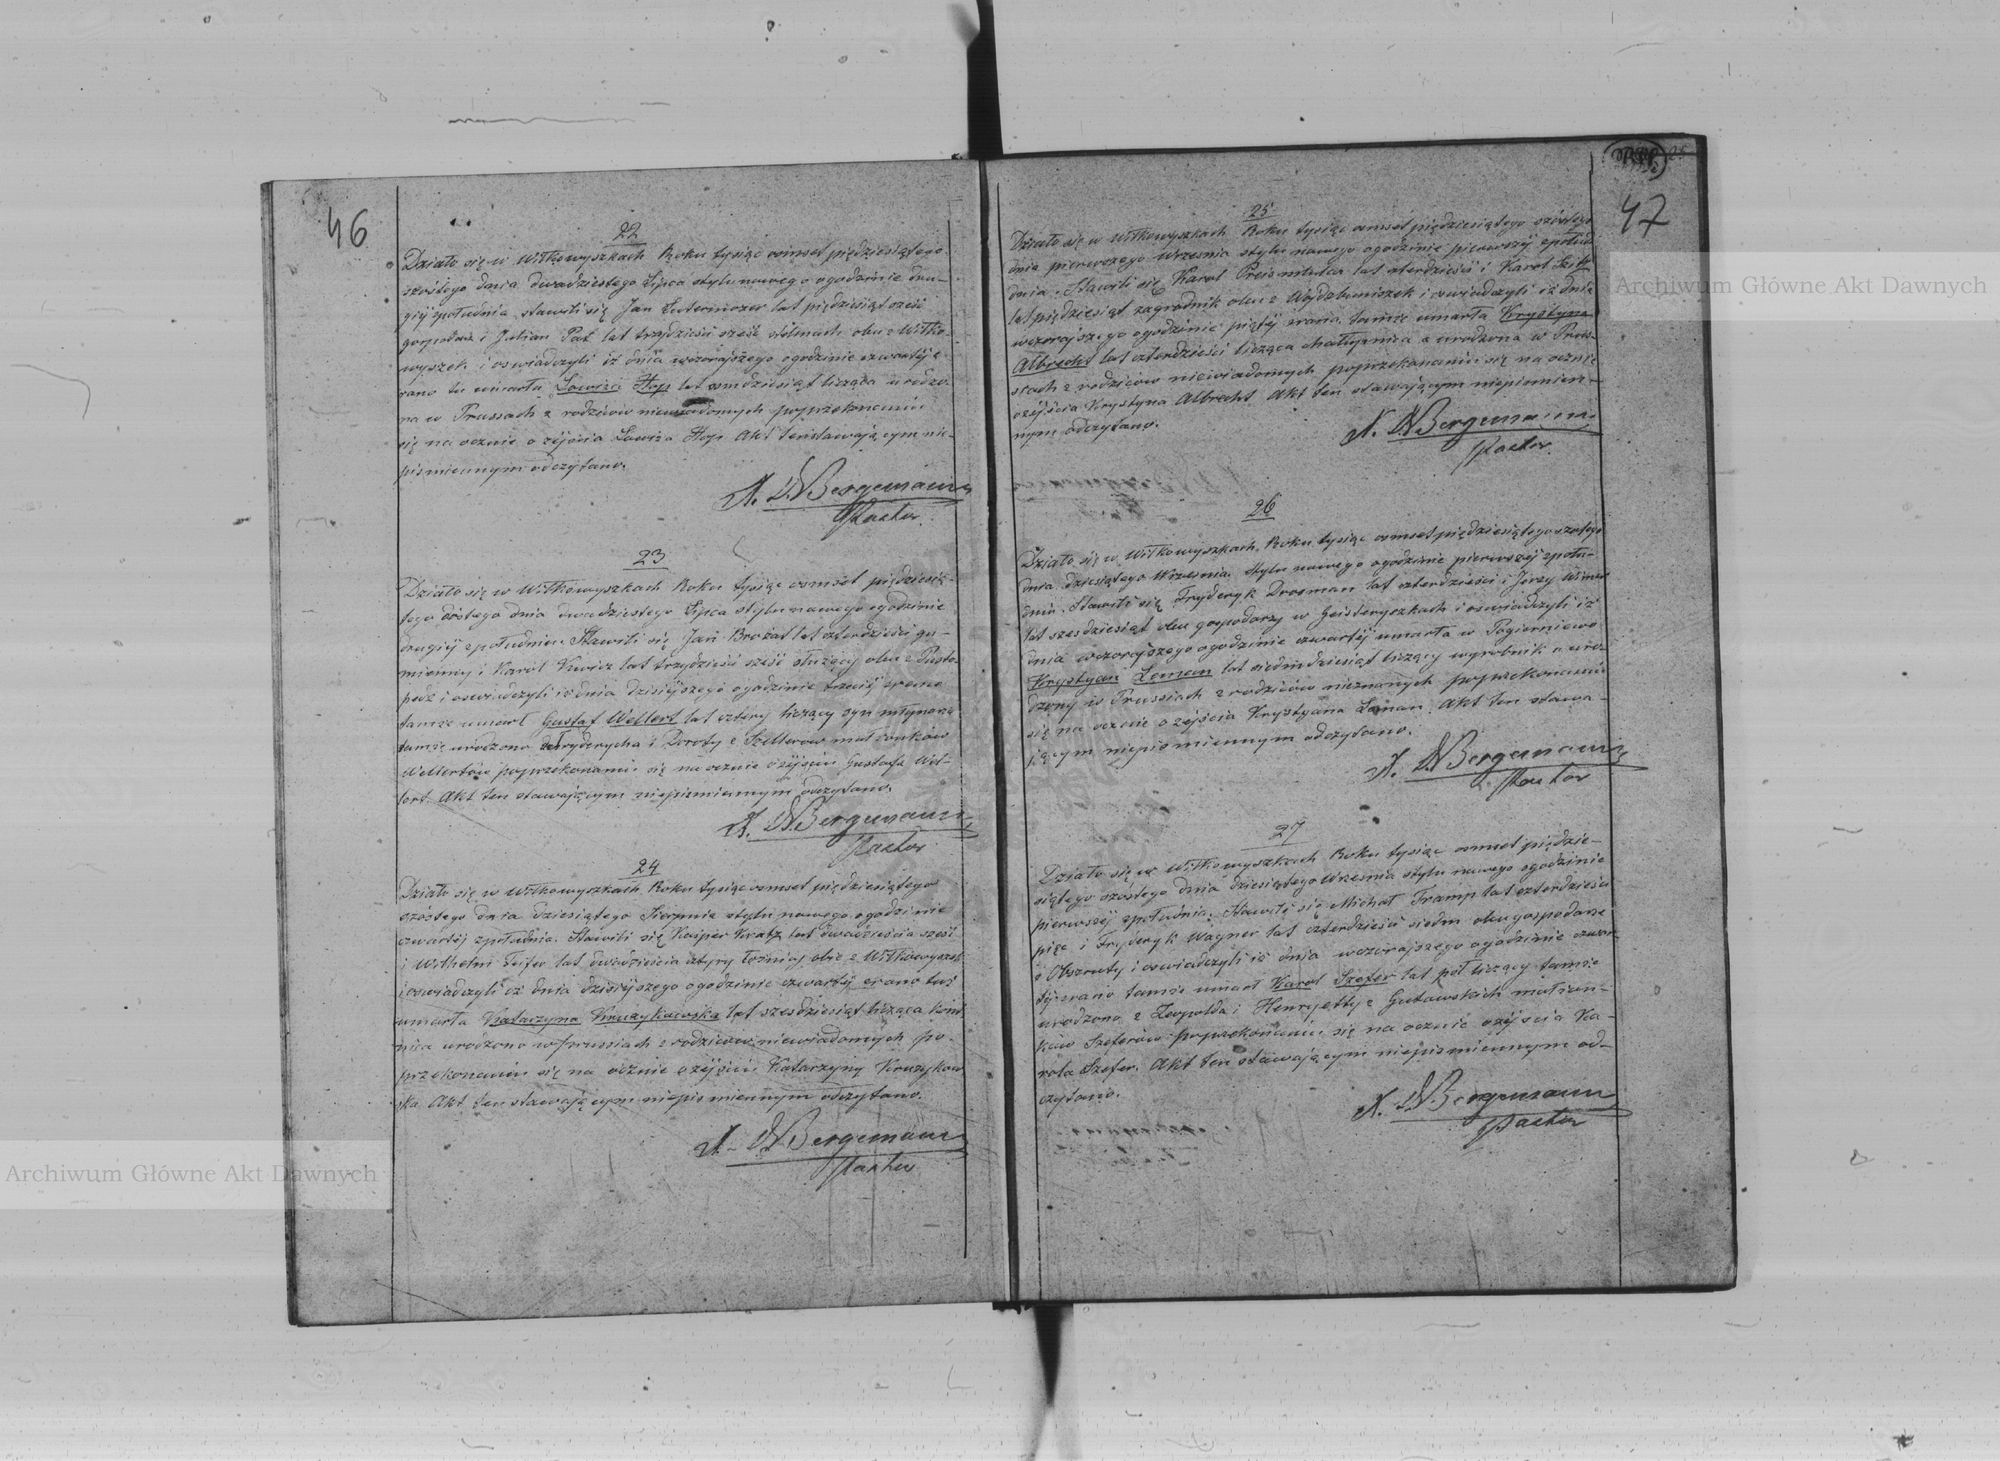 46
22
Działo się w Wiłkowyszkach Roku tysiąc osmset pięćdziesiątego
szóstego dnia dwudziestego Lipca stylu nowego ogodzinie dru-
giéj zpołudnia stawili się Jan lat pięćdziesiąt sześć
gospodarz i Julian Pat lat trzydzieści sześć obu z Wiłko-
wyszek i oswiadczyli iż dnia wczorajszego ogodzinie czwartéj z
rano tu umarła Lowiza Hop lat osmdziesiąt licząca urodzo-
na w Prussach z rodziców niewiadomych poprzekonaniu
się na ocznie o zéjścia Lowiza Hop Akt ten stawającym nie-
pismiennym odczytano.
A. W Bergemann
Pastor.
23
Działo się w Wiłkowyszkach Roku tysiąc osmset pięćdziesią-
tego szóstego dnia dwudziestego Lipca stylu nowego ogodzinie
drugiéj zpołudnia. Stawili się Jan Brożat lat czterdzieści gu-
mienny i Karol lat trzydzieści sześć służący obu z Pusto-
pedz i oswiadczyli iż dnia dzisiéjszego ogodzinie trzeciéj zrana
tamże umarł Gustaf Wellert lat cztery liczący syn młynarza
tamże urodzony Fryderycha i Doroty z Szellerów małżonków
Wellertów poprzekonaniu się na ocznie o zéjściu Gustafa Wel-
lert Akt ten stawającym niepismiennym odczytano.
A. W Bergemann
Pastor
24
Działo się w Wiłkowyszkach Roku tysiąc osmset pięćdziesiątego
szóstego dnia dziesiątego Sierpnia stylu nowego ogodzinie
czwartéj zpołudnia. Stawili się Kasper Kratz lat dwadzieścia sześć
i Wilhelm Teifer lat dwadzieścia cztyry obie z Wiłkowyszek
i oswiadczyli iż dnia dzisiéjszego ogodzinie czwartéj zrano tuż
umarła Katarzyna Kruzykowska lat szesdziesiąt licząca kom-
nica urodzona w Prussiach z rodziców niewiadomych po-
przekonaniu się na ocznie o zéjściu Katarzyny Kruzykow-
ska Akt ten stawającym niepismiennym odczytano.
A. W Bergemann
Pastor
47
25
Działo się w Wiłkowyszkach Roku tysiąc osmset pięćdziesiątego szóstego
dnia pierwszego Września stylu nowego ogodzinie pierwszéj zpołu-
dnia. Stawili się Karol lat czterdzieści i Karol
lat pięćdziesiąt zagrodnik obu z i oswiadczyli iż dnia
wczorajszego ogodzinie piątéj zrana tamże umarła Krystyna
Albrecht lat czterdzieści licząca chałupnica a urodzona w Prus-
sach z rodziców niewiadomych poprzekonaniu się na ocznie
ozéjścia Krystyna Albrecht Akt ten stawającym niepismien-
nym odczytano.
A. W Bergemann
Pastor.
26
Działo się w Wiłkowyszkach, Roku tysiąc osmset pięćdziesiątego szóstego
dnia dziesiątego Września stylu nowego ogodzinie pierwszéj zpołu-
dnia. Stawili się Fryderyk Drosman lat czterdzieści i Jerzy
lat szesdziesiąt obu gospodarzy w Geisteryszkach i oswiadczyli iż
dnia wczorajszego ogodzinie czwartéj umarła w Pogierniewo
Krystyan Leman lat siedmdziesiąt liczący wyrobnik a uro-
dzony w Prussiach z rodziców nieznanych poprzekonaniu
się na ocznie o zéjścia Krystyana Leman. Akt ten stawa-
jącym niepismiennym odczytano.
A. W Bergemann
Pastor
27
Działo się w Wiłkowyszkach Roku tysiąc osmset pięćdzie-
siątego szóstego dnia dziesiątego Wrzesnia stylu nowego ogodzinie
pierwszéj zpołudnia. Stawili się Michał Tramp lat czterdzieści
pięc i Fryderyk Wagner lat czterdzieści siedm obu gospodarze
z Obszruty i oswiadczyli iż dnia wczorajszego ogodzinie czwar-
téj zrano tamże umarł Karol Szefer lat pół liczący tamże
urodzony z Leopolda i Henryetty z Gutowskich małżon-
ków Szeferów poprzekonaniu się na ocznie ozéjścia Ka-
rola Szefer. Akt ten stawającym niepismiennym od-
czytano.
A. W Bergemann
Pastor
Archiwum Główne Akt Dawnych
Archiwum Główne Akt Dawnych